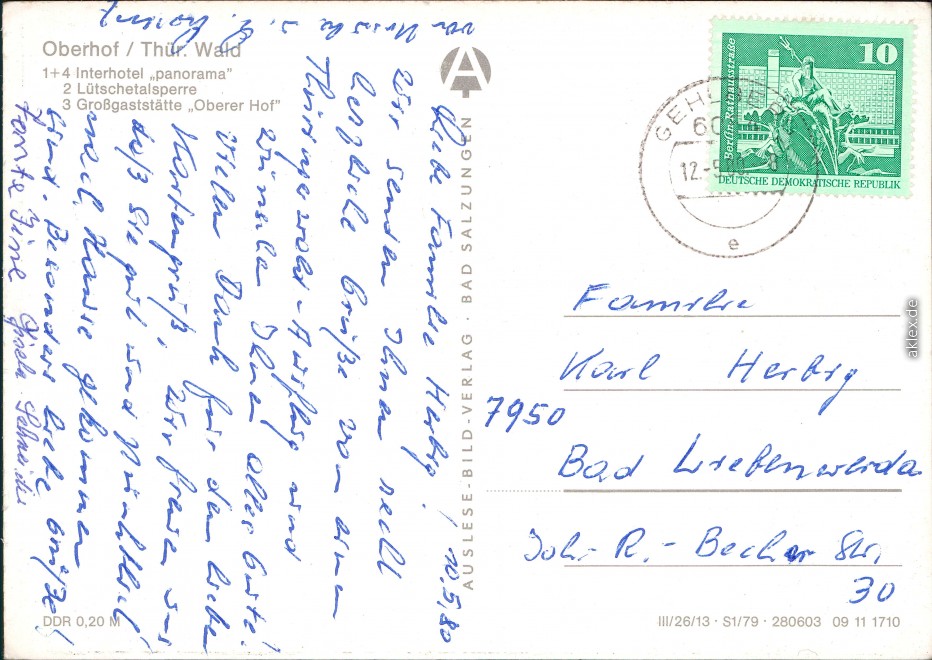 Oberhof / Thür. Wald
1+4 Interhotel „panorama“
2 Lütschetalsperre
3 Großgaststätte „Oberer Hof“
10.5.80
Liebe Familie Herbig!
Wir senden Ihnen recht
herzliche Grüße von einem
Thüringerwald-Ausflug und
wünschen Ihnen alles Gute!
Vielen Dank für den lieben
Kartengruß. Wir freuen uns
daß Sie gut und pünktlich
nach Hause gekommen
sind. Besonders liebe Grüße!
Familie
Gisela Schneider
AUSLESE-BILD-VERLAG · BAD SALZUNGEN
Berlin-Rathausstraße
10
DEUTSCHE DEMOKRATISCHE REPUBLIK
GEHL
12.-5.
e
Familie
Karl Herbig
7950
Bad Liebenwerda
Joh.-R.-Becher Str.
30
DDR 0,20 M
III/26/13 · S1/79 · 280603 09 11 1710
aklex.de